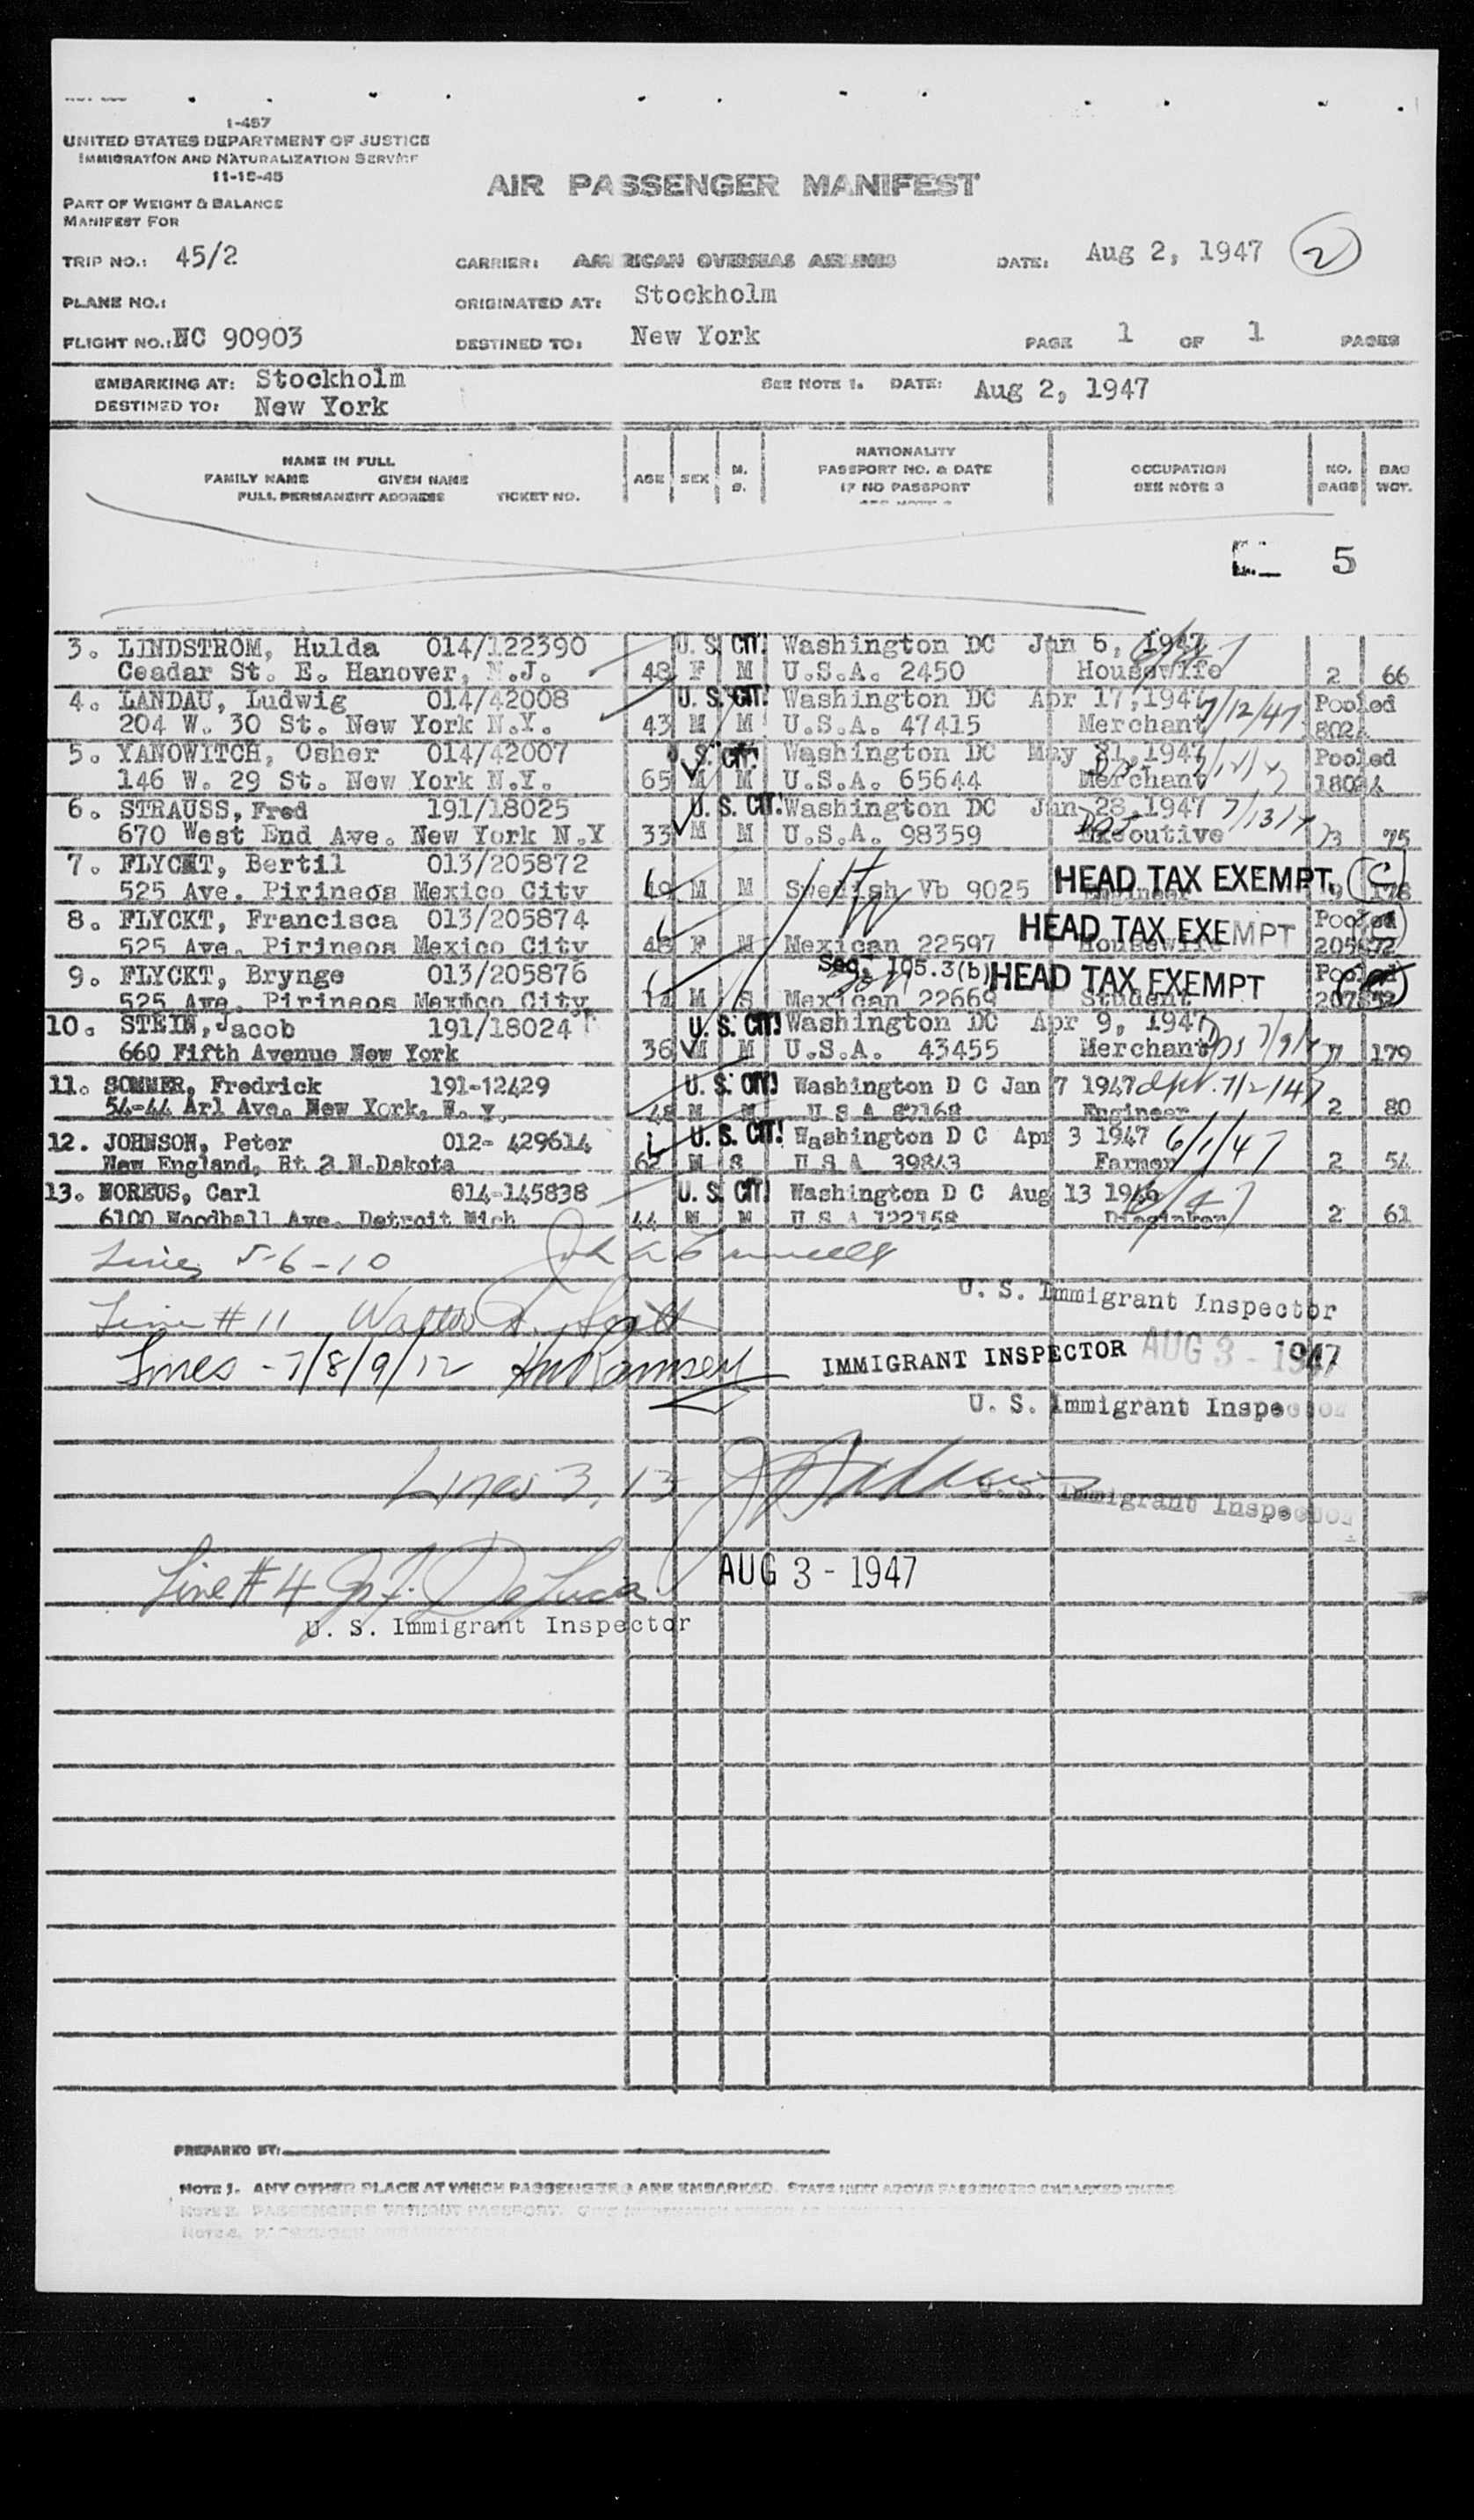 1-457
UNITED STATES DEPARTMENT OF JUSTICE
IMMIGRATION AND NATURALIZATION SERVICE
11-15-45
AIR PASSENGER MANIFEST
PART OF WEIGHT & BALANCE
MANIFEST FOR
TRIP NO.: 45/2 CARRIER: AMERICAN OVERSEAS AIRLINES DATE: Aug 2, 1947 2
PLANE NO.: ORIGINATED AT: Stockholm
FLIGHT NO.: NC 90903 DESTINED TO: New York PAGE 1 OF 1 PAGES
EMBARKING AT: Stockholm SEE NOTE 1. DATE: Aug 2, 1947
DESTINED TO: New York
NAME IN FULL
FAMILY NAME GIVEN NAME
FULL PERMANENT ADDRESS TICKET NO.
AGE SEX M. S.
NATIONALITY
PASSPORT NO. & DATE
IF NO PASSPORT
OCCUPATION
SEE NOTE 3
NO. BAGS
BAG WGT.
5
3. LINDSTROM, Hulda 014/122390 U. S. CIT. Washington DC Jan 6, 1947
Ceadar St. E. Hanover, N.J. 48 F M U.S.A. 2450 Housewife 2 66
4. LANDAU, Ludwig 014/42008 U. S. CIT. Washington DC Apr 17, 1947 Pooled
204 W. 30 St. New York N.Y. 43 M M U.S.A. 47415 Merchant 7/12/47
5. YANOWITCH, Osher 014/42007 U. S. CIT. Washington DC May 21, 1947 Pooled
146 W. 29 St. New York N.Y. 65 M M U.S.A. 65644 Merchant
6. STRAUSS, Fred 191/18025 U. S. CIT. Washington DC Jan 28, 1947 7/13/47
670 West End Ave. New York N.Y 33 M M U.S.A. 98359 Executive 75
7. FLYCKT, Bertil 013/205872 HEAD TAX EXEMPT. (C)
525 Ave. Pirineos Mexico City 49 M M Swedish Vb 9025 Engineer 9 178
8. FLYCKT, Francisca 013/205874 HEAD TAX EXEMPT Pooled
525 Ave. Pirineos Mexico City 48 F M Mexican 22597 Housewife 205872
9. FLYCKT, Brynge 013/205876 Sec. 105.3(b) HEAD TAX EXEMPT Pooled
525 Ave. Pirineos Mexico City 14 M S Mexican 22669 Student
10. STEIN, Jacob 191/18024 U. S. CIT. Washington DC Apr 9, 1947
660 Fifth Avenue New York 36 M M U.S.A. 43455 Merchant 179
11. SOMMER, Fredrick 191-12429 U. S. CIT. Washington D C Jan 7 1947 dpt. 7/2/47
54-44 Arl Ave. New York, N. Y. 48 M M U S A 82168 Engineer 2 80
12. JOHNSON, Peter 012- 429614 U. S. CIT. Washington D C Apr 3 1947 6/1/47
New England, Rt 2 N.Dakota 62 M S U S A 39843 Farmer 2 54
13. NOREUS, Carl 014-145838 U. S. CIT. Washington D C Aug 13 1946
6100 Woodhall Ave. Detroit Mich 44 M M U S A 122158 2 61
Lines 5-6-10
U. S. Immigrant Inspector
Line # 11 Walter A. Scott
Lines - 7/8/9/12 HW Ramsey IMMIGRANT INSPECTOR AUG 3 - 1947
U. S. Immigrant Inspector
Lines 3, 13
U. S. Immigrant Inspector
Line # 4 DeLuca AUG 3 - 1947
U. S. Immigrant Inspector
PREPARED BY:
NOTE 1. ANY OTHER PLACE AT WHICH PASSENGERS ARE EMBARKED. STATE NEXT ABOVE PASSENGERS EMBARKED THERE
NOTE 2. PASSENGERS WITHOUT PASSPORT.